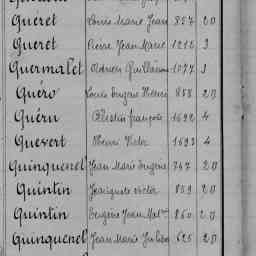 Queret Louis Marie Jean 857 20
Queret Pierre Jean Marie 1212 3
Quermalet Adrien Guillaume 1077 3
Quéro Louis Eugène Henri 858 20
Quéru Célestin François 1692 4
Quevert Henri Victor 1693 4
Quinquenel Jean Marie Eugène 747 20
Quintin Auguste Victor 859 20
Quintin Eugène Jean 860 20
Quinquenel Jean Marie Julien 625 20